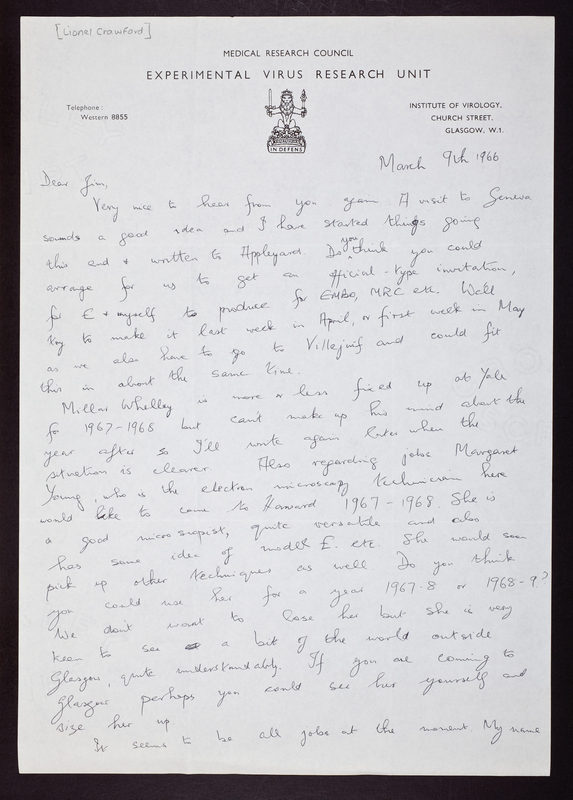 [Lionel Crawford]
MEDICAL RESEARCH COUNCIL
EXPERIMENTAL VIRUS RESEARCH UNIT
Telephone:
Western 8855
INSTITUTE OF VIROLOGY,
CHURCH STREET,
GLASGOW, W.1.
IN DEFENS
March 9th 1966
Dear Jim,
Very nice to hear from you again. A visit to Geneva
sounds a good idea and I have started things going
this end & written to Appleyard. Do you think you could
arrange for us to get an official-type invitation,
for E & myself to produce for EMBO, MRC etc. Well
try to make it last week in April, or first week in May
as we also have to go to Villejuif and could fit
this in about the same time.
Millar Whelley is more or less fixed up at Yale
for 1967-1968 but can't make up his mind about the
year after so I'll write again later when the
situation is clearer. Also regarding jobs Margaret
Young, who is the electron microscopy technician here
would like to come to Harvard 1967-1968. She is
a good microscopist, quite versatile and also
has some idea of model E. etc. She would soon
pick up other techniques as well. Do you think
you could use her for a year 1967-8 or 1968-9?
We don't want to lose her but she is very
keen to see a bit of the world outside
Glasgow, quite understandably. If you are coming to
Glasgow perhaps you could see her yourself and
size her up.
It seems to be all jobs at the moment My name